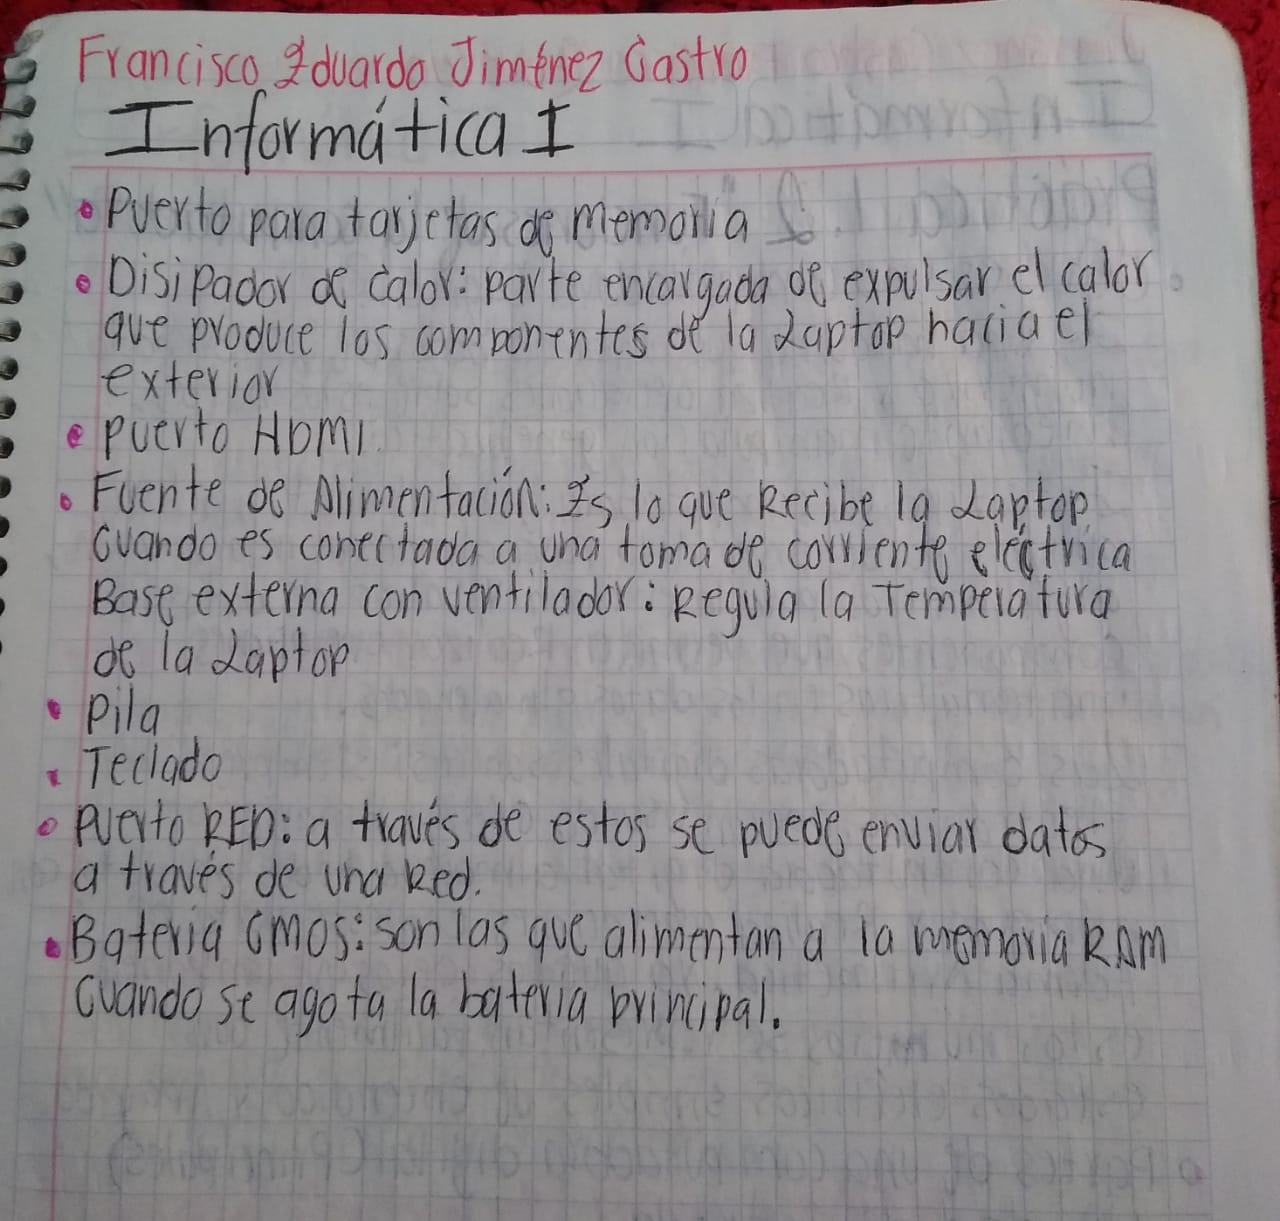 Francisco Eduardo Jiménez Castro
Informática I
• Puerto para tarjetas de memoria
• Disipador de calor: parte encargada de expulsar el calor
que produce los componentes de la Laptop hacia el
exterior
• Puerto HDMI
• Fuente de Alimentación: Es lo que Recibe la Laptop
cuando es conectada a una toma de corriente eléctrica
Base externa con ventilador: Regula la Temperatura
de la Laptop
• Pila
• Teclado
• Puerto RED: a través de estos se puede enviar datos
a través de una Red.
• Bateria CMOS: son las que alimentan a la memoria RAM
cuando se agota la bateria principal.